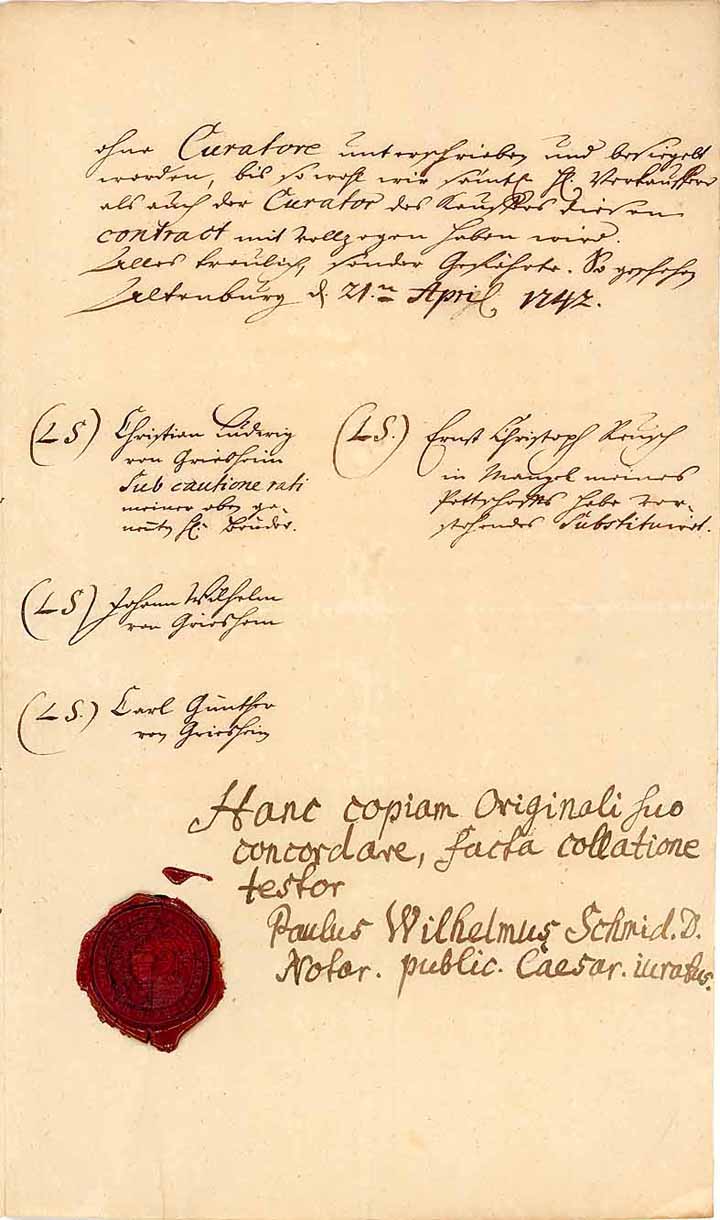 ohne Curatore unterschrieben und besiegelt
worden, bis so wohl wir sämtl. H. Verkäuffere
als auch der Curator des Kauffes diesen
contract mit vollzogen haben wird.
Alles treulich, sonder Gefährde. So geschehen
Altenburg d. 21.n April, 1742.
(LS) Christian Ludewig
von Griesheim
Sub cautione rati
meiner oben ge-
nenten H. Brüder.
(LS.) Ernst Christoph Reusch
in Mangel meines
Pettschaffts habe vor-
stehendes Substituiret.
(LS) Johann Wilhelm
von Griesheim
(LS.) Carl Günther
von Griesheim
Hanc copiam Originali suo
concordare, facta collatione
testor
Paulus Wilhelmus Schmid. D.
Notar. public. Caesar. iuratus.